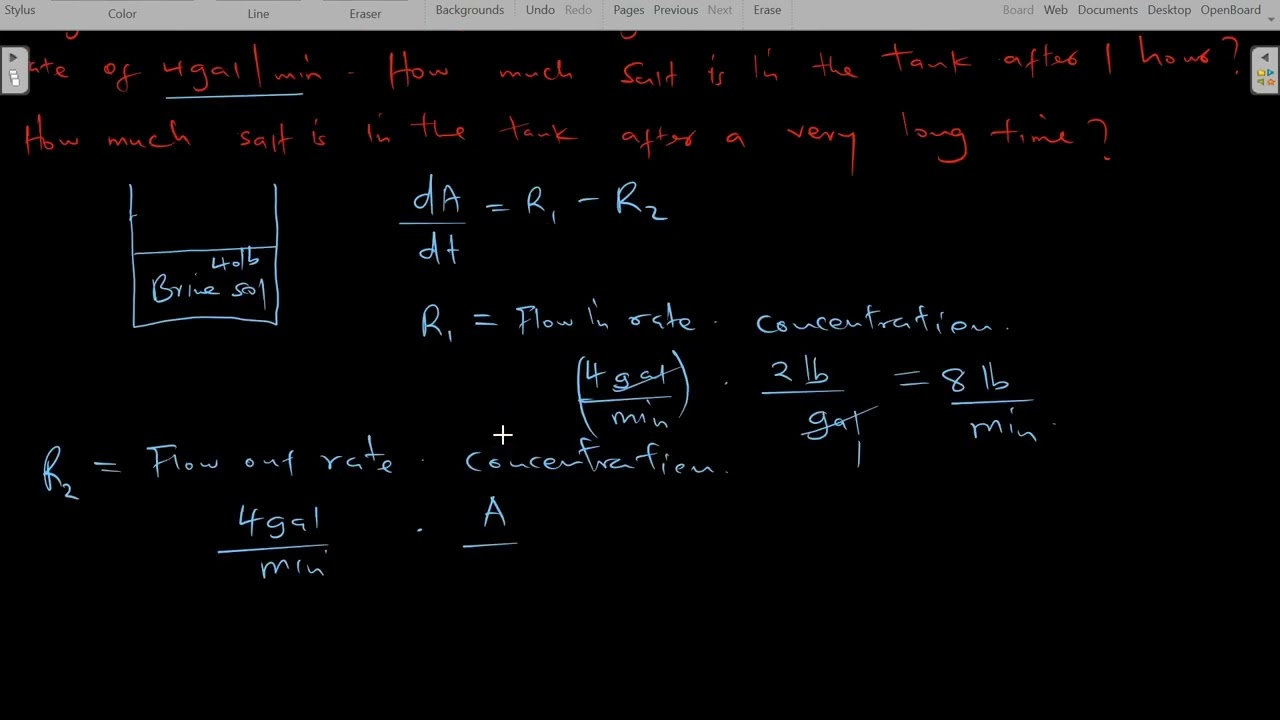 Stylus Color Line Eraser Backgrounds Undo Redo Pages Previous Next Erase Board Web Documents Desktop OpenBoard
ate of 4gal/min. How much salt is in the tank after 1 hour?
How much salt is in the tank after a very long time?
dA/dt = R₁ - R₂
40lb
Brine sol
R₁ = Flow in rate . concentration.
(4 gal/min) . 2 lb/gal = 8 lb/min.
R₂ = Flow out rate . concentration.
4gal/min . A